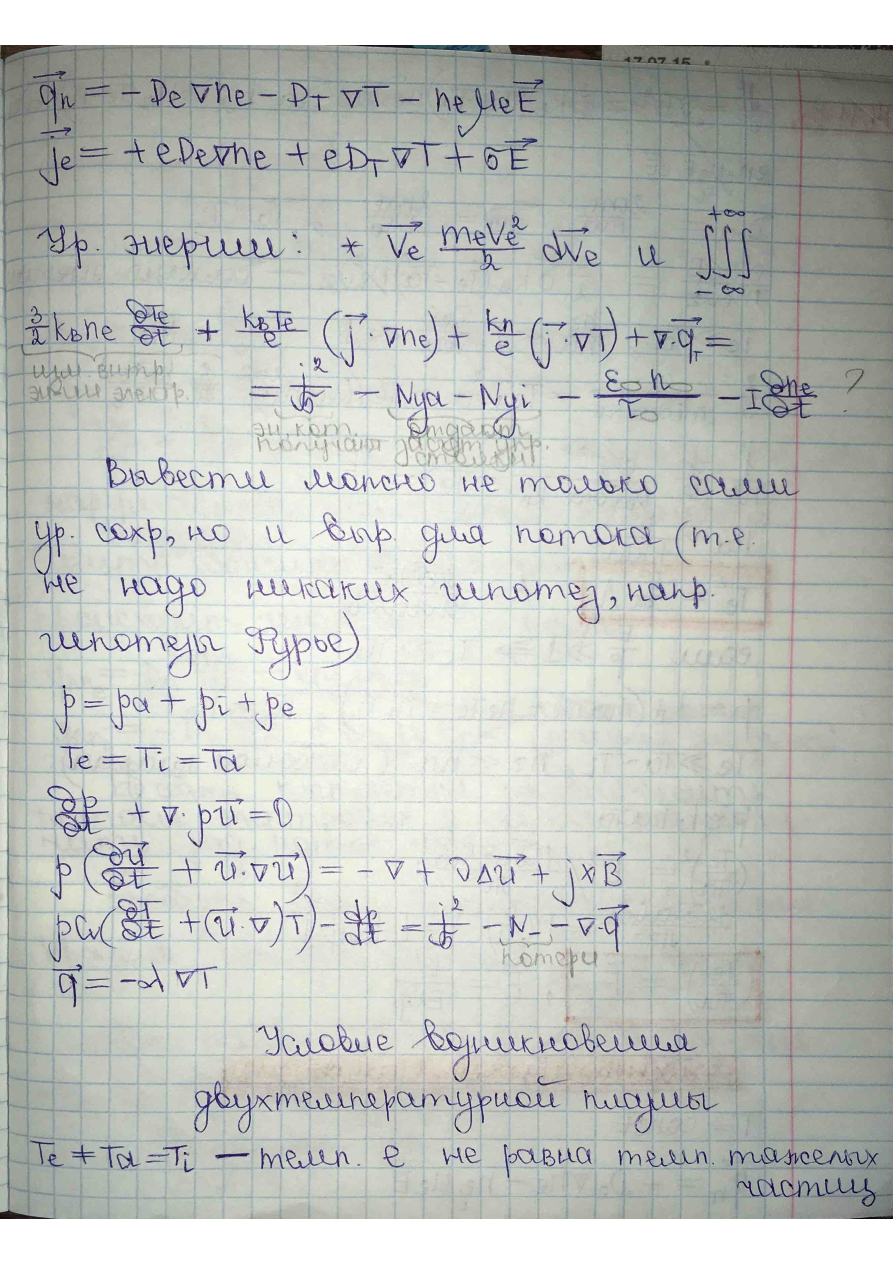 17.07.15
q⃗n = − De ∇ne − DT ∇T − ne μe E⃗
j⃗e = + eDe∇ne + eDT ∇T + σE⃗
Ур. энергии: * V⃗e meVe²/2 dV⃗e и ∫∫∫ +∞ −∞
3/2 kв ne ∂Te/∂t + kвTe/e (j⃗ · ∇ne) + kn/e (j⃗ · ∇T) + ∇·q⃗T =
изм. внутр.
энгии электр.
= j²/σ − Nуа − Nуi − ε₀n₀/τ₀ − I ∂ne/∂t ?
эй кот. отдают
получают за счет упр.
столкн.
Вывести можно не только сами
ур. сохр, но и выр. для потока (т.е.
не надо никаких гипотез, напр.
гипотезы Фурье)
p = pa + pi + pe
Te = Ti = Ta
∂ρ/∂t + ∇· ρu⃗ = 0
ρ(∂u⃗/∂t + u⃗·∇u⃗) = −∇ + ν∆u⃗ + j×B⃗
ρCv(∂T/∂t + (u⃗·∇)T) − dp/dt = j²/σ − N₋ − ∇·q⃗
потери
q⃗ = −λ ∇T
Условие возникновения
двухтемпературной плазмы
Te ≠ Ta = Ti — темп. e не равна темп. тяжелых
частиц